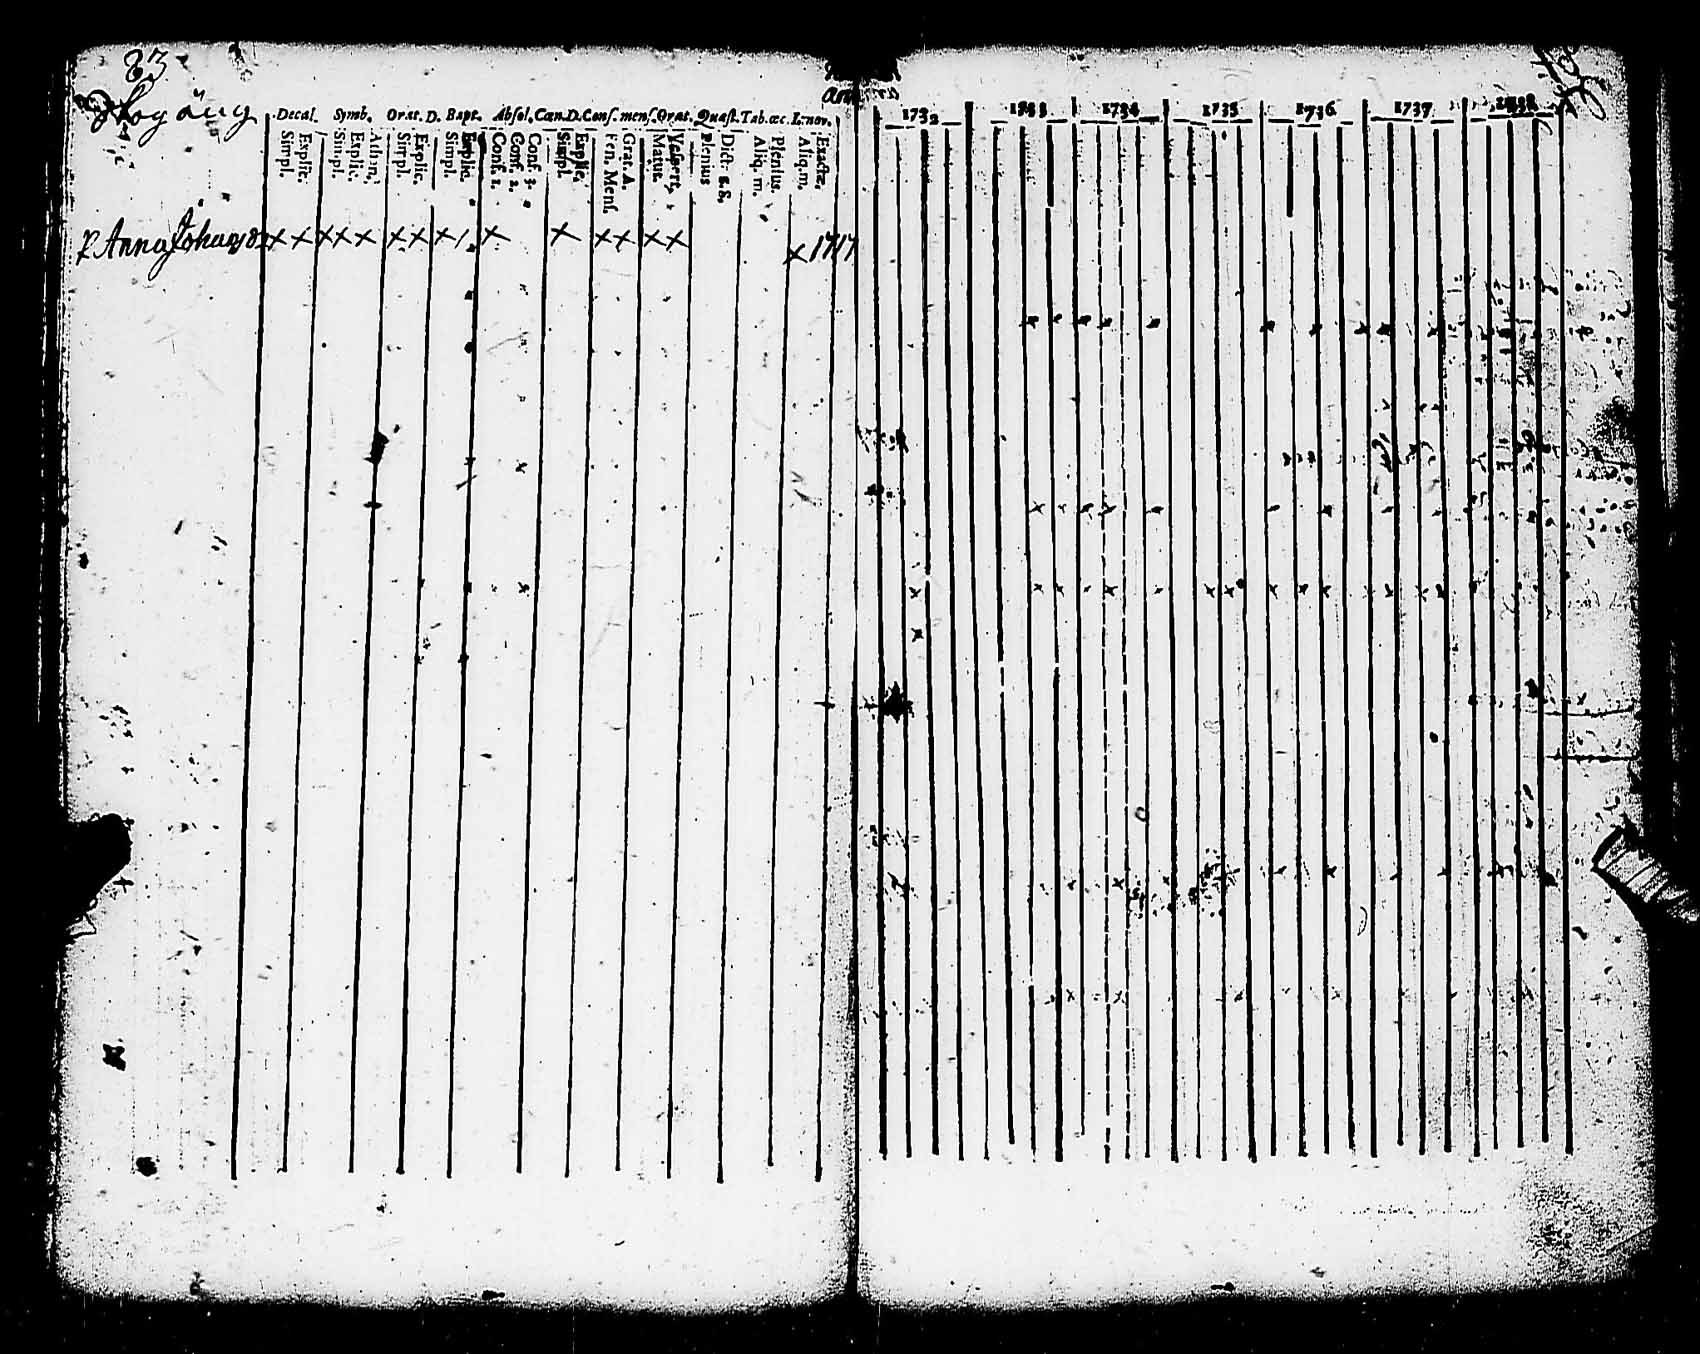 83
Skogäng
Decal. Symb. Orat. D. Bapt. Absol. Cœn. D. Conf. mens. Orat. Quæst. Tab. œc. L. nov.
Explic. Simpl.
Athan. Explic. Simpl.
Explic. Simpl.
Explic. Simpl.
Conf. 3. Conf. 2. Conf. 1.
Explic. Simpl.
Grat. A. Ben. Mens.
Vespert. Matut.
Dict. S.S. Plenius
Plenius. Aliq. m.
Exactè. Aliq. m.
Anna Johansd x x x x x x x x / x x x x x x x 1717
1732 1733 1734 1735 1736 1737 1738